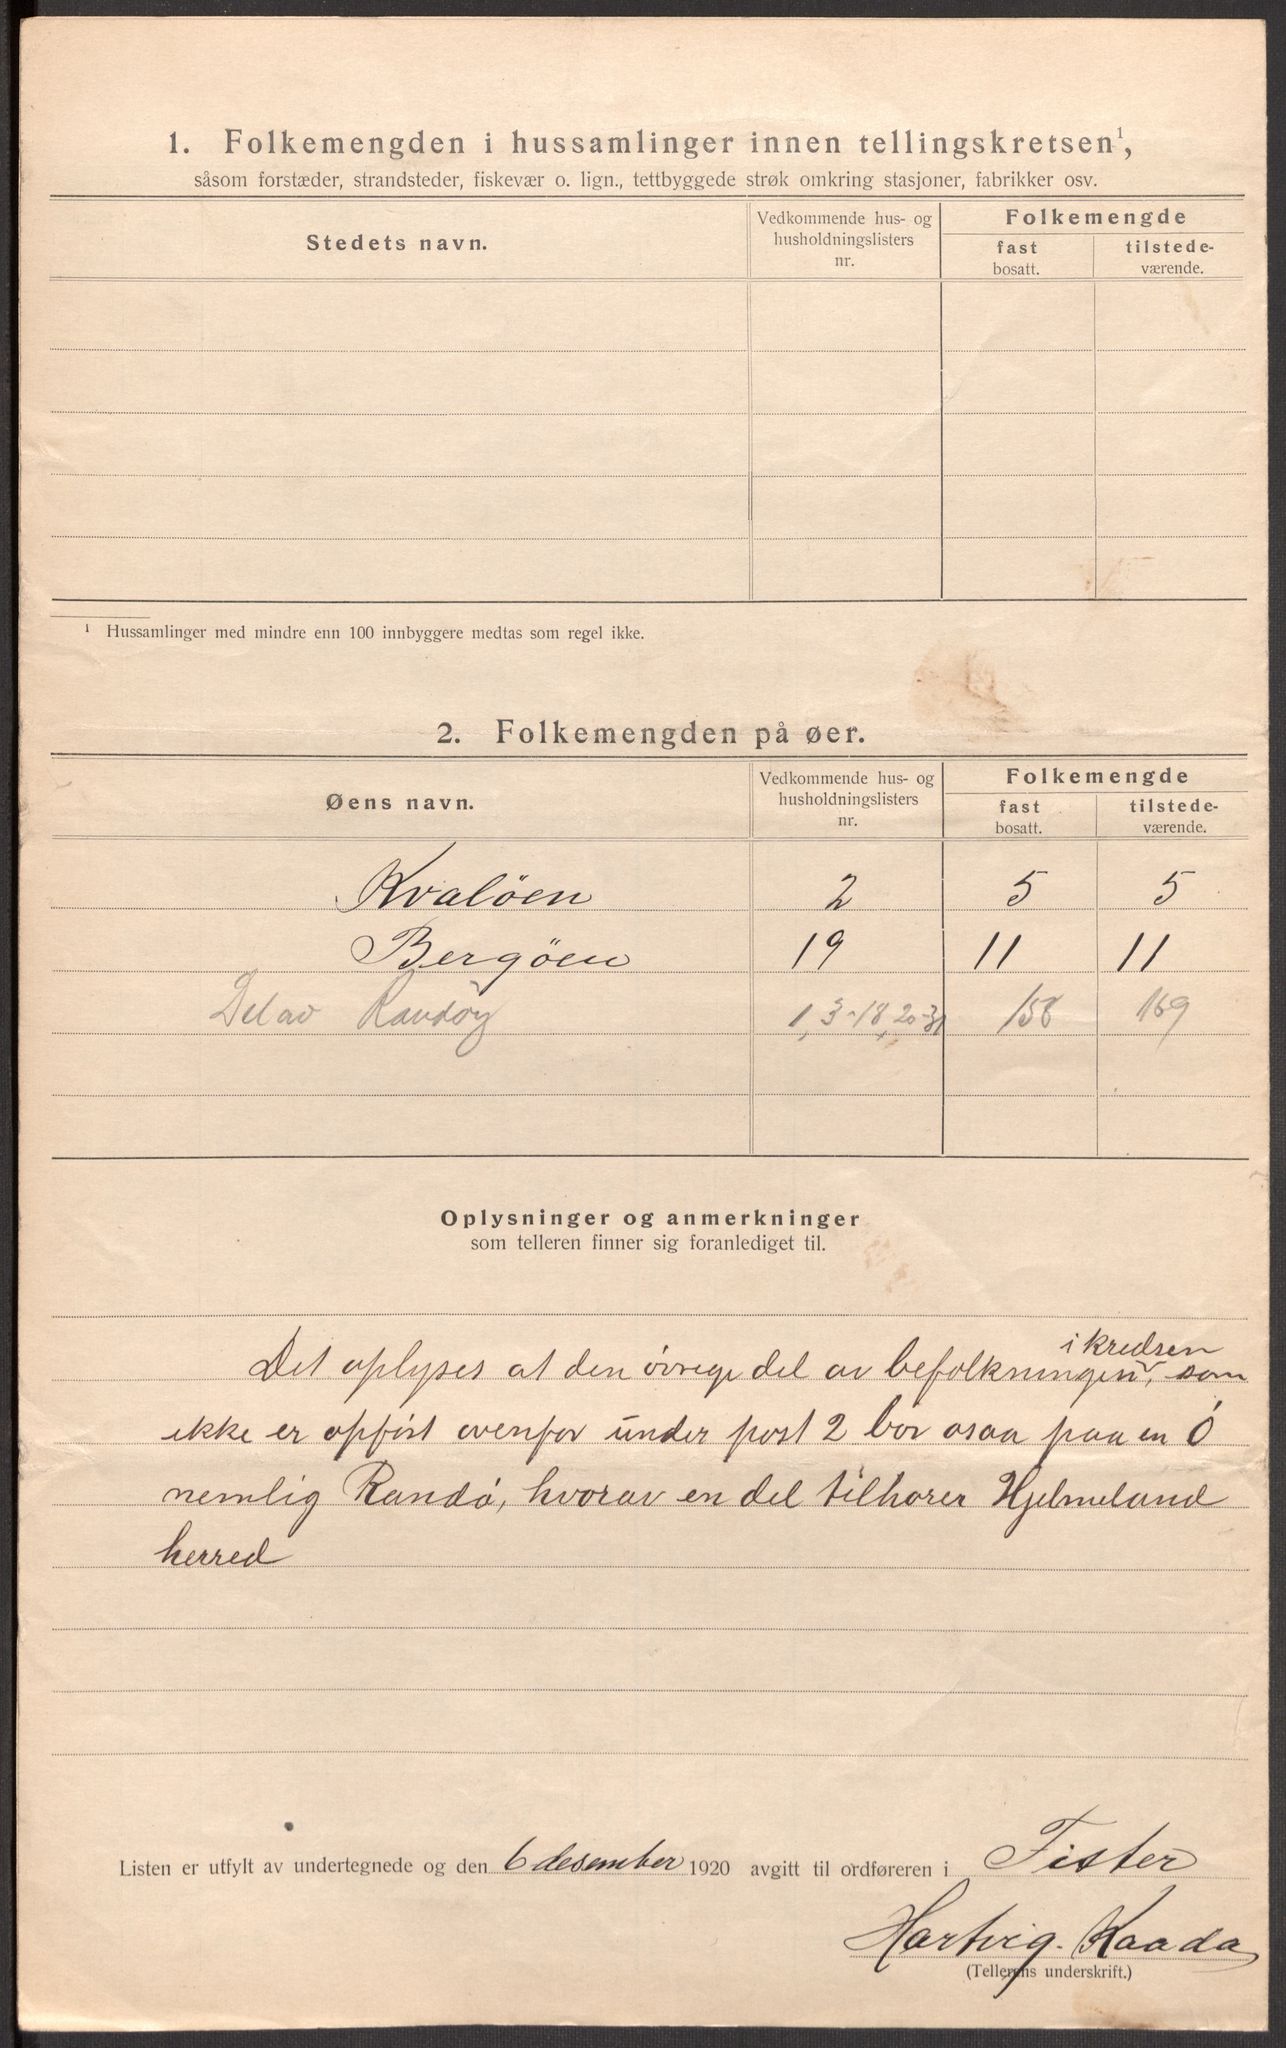 1. Folkemengden i hussamlinger innen tellingskretsen¹,
såsom forstæder, strandsteder, fiskevær o. lign., tettbyggede strøk omkring stasjoner, fabrikker osv.
Stedets navn.
Vedkommende hus- og
husholdningslisters
nr.
Folkemengde
fast
bosatt.
tilstede-
værende.
¹ Hussamlinger med mindre enn 100 innbyggere medtas som regel ikke.
2. Folkemengden på øer.
Øens navn.
Vedkommende hus- og
husholdningslisters
nr.
Folkemengde
fast
bosatt.
tilstede-
værende.
Kvalöen 2 5 5
Bergöen 19 11 11
Del av Randöy 1, 3-18, 20-31 158 169
Oplysninger og anmerkninger
som telleren finner sig foranlediget til.
i kredsen
Det oplyses at den övrige del av befolkningen, som
ikke er opfört ovenfor under post 2 bor osaa paa en Ö
nemlig Randö, hvorav en del tilhører Hjelmeland
herred
Listen er utfylt av undertegnede og den 6 desember 1920 avgitt til ordføreren i Fister
Hartvig. Kaada
(Tellerens underskrift.)